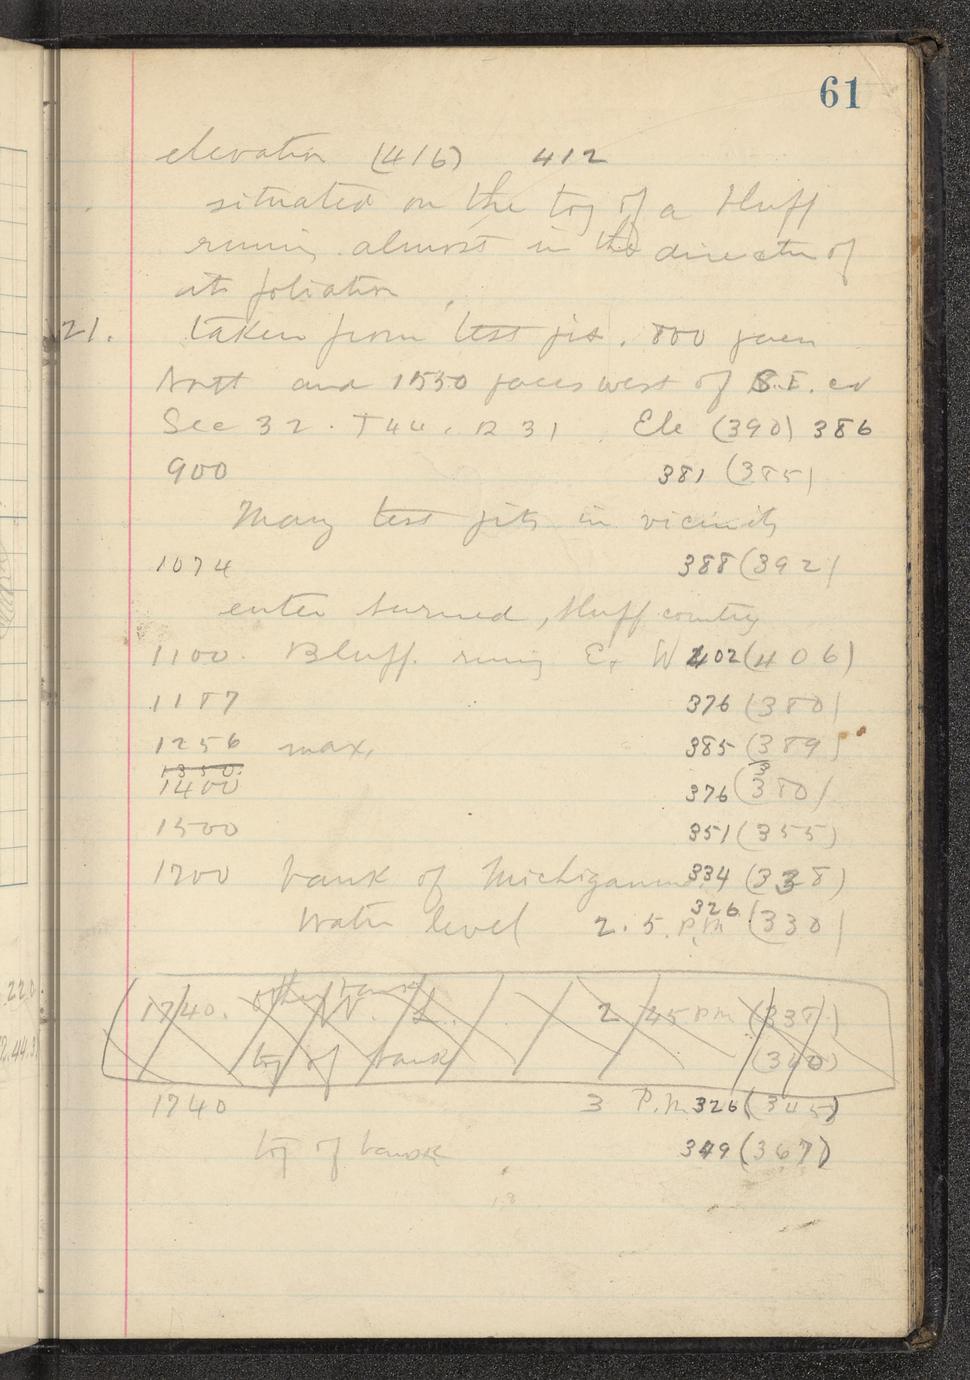 61
elevation (416) 412
situated on the top of a bluff
runing almost in the direction of
its foliation
21. taken from test pit. 800 paces
North and 1550 paces west of S.E. cor
Sec 32. T44. R 31. Ele (390) 386
900 381 (385)
Many test pits in vicinity
1074 388 (392)
enter burned, bluff country
1100. Bluff runing E. W 402 (406)
1187 376 (380)
1256 max. 385 (389)
1350.
1400 376 (380)
1500 351 (355)
1700 bank of Michigamme 334 (338)
326
Water level 2.5. P.M (330)
other bank
1740. W. L. 2 45 PM (338)
top of bank (340)
1740 3 P.M. 326 (345)
top of bank 349 (367)